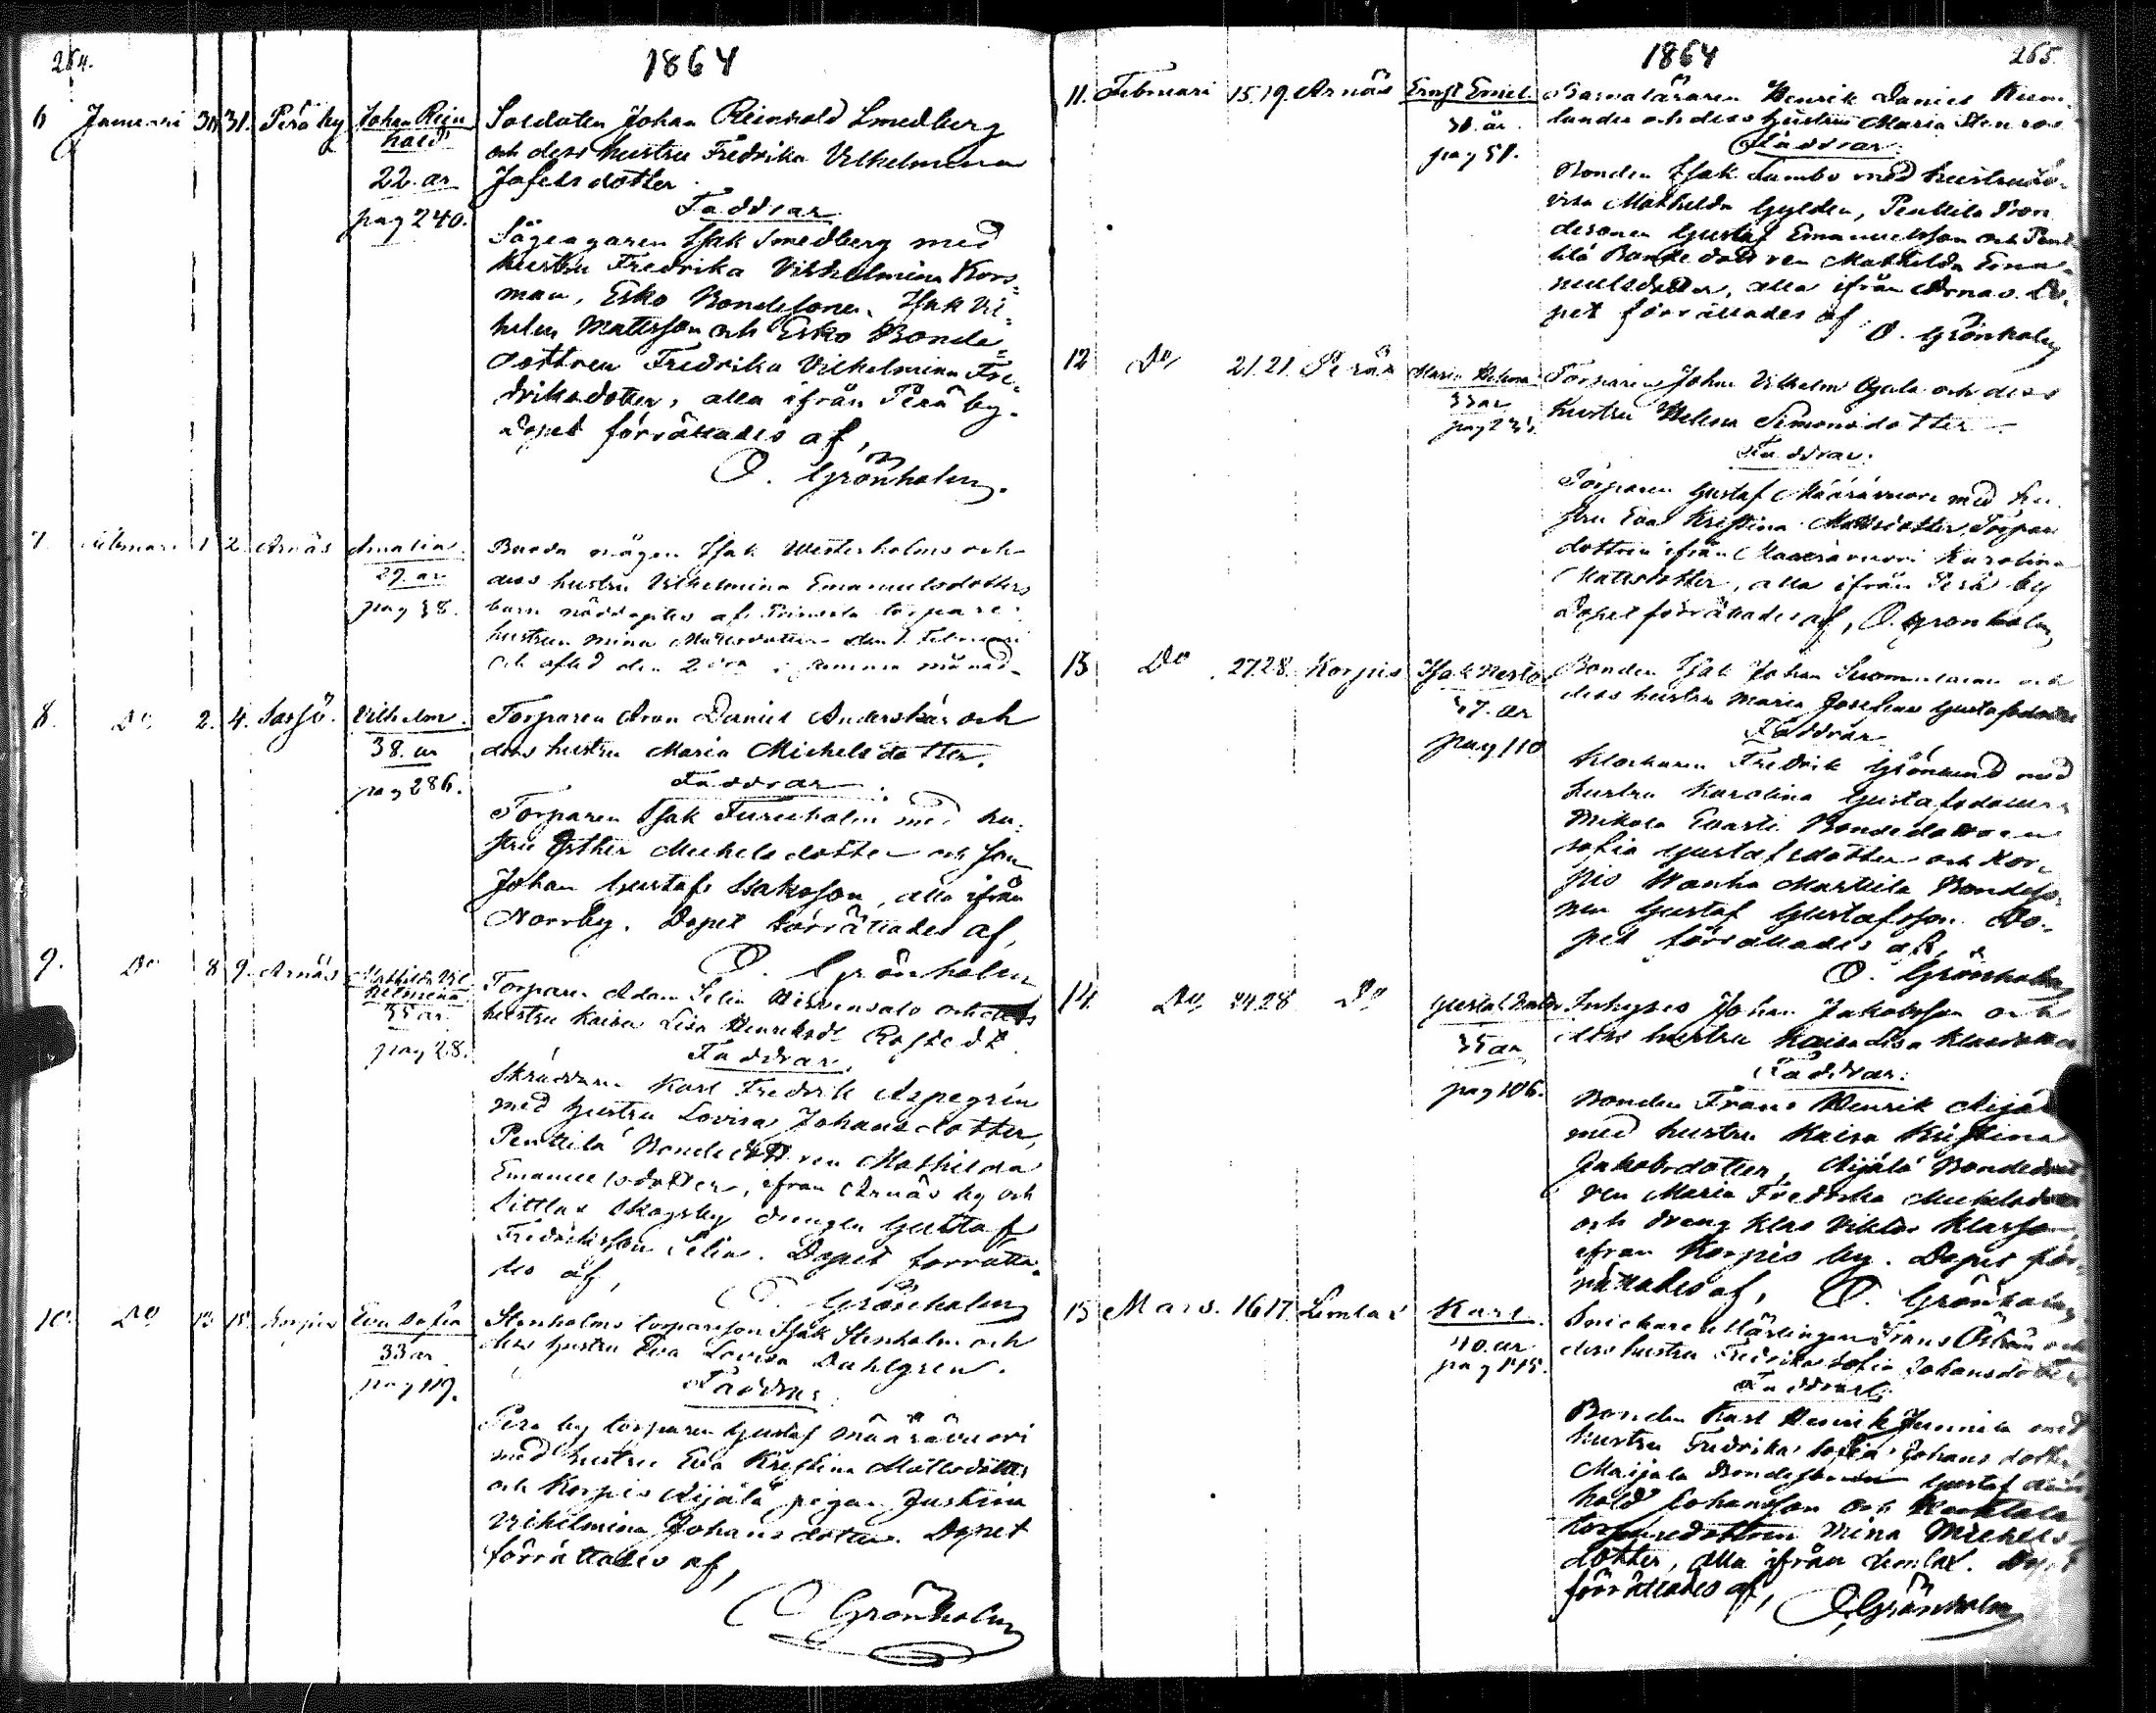 264.
1864
6 Januari 30 31. Perä by Johan Rein
hold
22. ar
pag 240.
Soldaten Johan Reinhold Smedberg
och dess hustru Fredrika Vilhelmina
Josefsdotter
Faddrar
Sågegaren Isak Smedberg med
hustru Fredrika Vilhelmina Kors=
man, Esko Bondesonen Isak Vil=
helm Mattsson och Esko Bonde=
dottren Fredrika Vilhelmina Fre=
driksdotter, alla ifrån Perä by.
Dopet förrättades af,
O. Grönholm.
7. 1 2 Arnäs Amalia
29. ar
pag 38.
Bonda mågen Isak Westerholms och
dess hustru Vilhelmina Emanuelsdotters
barn nöddöptes af torpare
hustrun Mina den 1 Februari
och afled den 2 i samma månad
8. Do 2. 4. Sarsö Vilhelm.
38. ar
pag 286.
Torparen Aron Daniel Anderskär och
dess hustru Maria Michelsdotter.
Faddrar
Torparen Isak Furuholm med hu=
stru Esther Michelsdotter och son
Johan Gustaf Isaksson, alla ifrån
Norrby. Dopet förrättades af,
O. Grönholm
9. Do 8 9. Arnäs Mathilda Vil
helmina
35 ar
pag 28.
Torparen Adam Selin och dess
hustru Kaisa Lisa Henriksdr Rostedt
Faddrar.
Skräddaren Karl Fredrik Aspegrén
med hustru Lovisa Johansdotter,
Penttilä Bondedottren Mathilda
Emanuelsdotter, ifrån Arnäs by och
Sittlax Skogsby drengen Gustaf
Fredriksson Selin. Dopet förrätta=
des af,
O. Grönholm
10. Do 13 15 Korpis Eva Sofia
33 ar
pag 119.
Stenholms torparson Isak Stenholm och
dess hustru Eva Lovisa Dahlgren.
Faddrar
Perä by torparen Gustaf Määrävuori
med hustru Eva Kristina Mattsdotter
och Korpis Äijälä pigan Justina
Vilhelmina Johansdotter. Dopet
förrättades af,
O Grönholm
1864
265.
11. Februari 15. 19. Arnäs Ernst Emil.
30. år.
pag 51.
Barnaläraren Henrik Daniel
lander och dess hustru Maria Stenroos
Faddrar.
Bonden Isak Lambo med hustru Lo=
visa Mathilda Gylden, Penttilä Bon
desonen Gustaf Emanuelsson och Pent
tilä Bondedottren Mathilda Ema=
nuelsdotter, alla ifrån Arnäs. Do=
pet förrättades af
O. Grönholm
12 Do 21. 21. Perä Maria Helena
33 ar
Torparen Johan Vilhelm Ojala och dess
hustru Helena Simonsdotter
Faddrar.
Torparen Gustaf Määrävuori med hu
stru Eva Kristina Mattsdotter, Torpar
dottren ifrån Määrävuori Karolina
Mattsdotter, alla ifrån Perä by
Dopet förrättades af, O. Grönholm
13 Do 27. 28. Korpis Isak Nestor
37. ar
pag 110
Bonden Isak Johan Suominen och
dess hustru Maria Josefina Gustafsdotter
Faddrar
Klockaren Fredrik Grönlund med
hustru Karolina Gustafsdotter
Mikola Bondedottren
Sofia Gustafsdotter och Kor=
pis Wanha Marttila Bondeso=
nen Gustaf Gustafsson. Do=
pet förrättades af,
O. Grönholm
14. Do 24. 28 Do Gustaf
35 ar
pag 106.
Inhyses Johan Jakobsson och
dess hustru Kaisa Lisa Klasdotter
Faddrar.
Bonden Frans Henrik Äijälä
med hustru Kaisa Kristina
Jakobsdotter, Äijälä Bondedott
ren Maria Fredrika Michelsdotter
och dreng Klas Viktor Klasson,
ifrån Korpis by. Dopet för=
rättades af, O. Grönholm
15 Mars. 16 17. Lemlax Karl.
40. ar
pag 145.
Snickare Lärlingen Frans Öström och
dess hustru Fredrika Sofia Johansdotter
Faddrar.
Bonden Karl Henrik Junnila med
hustru Fredrika Sofia Johansdotter
Maijala Bondesonen Gustaf
hold Johansson och
torparedottren Mina Michels=
dotter, alla ifrån Lemlax. Dopet
förrättades af,
O. Grönholm